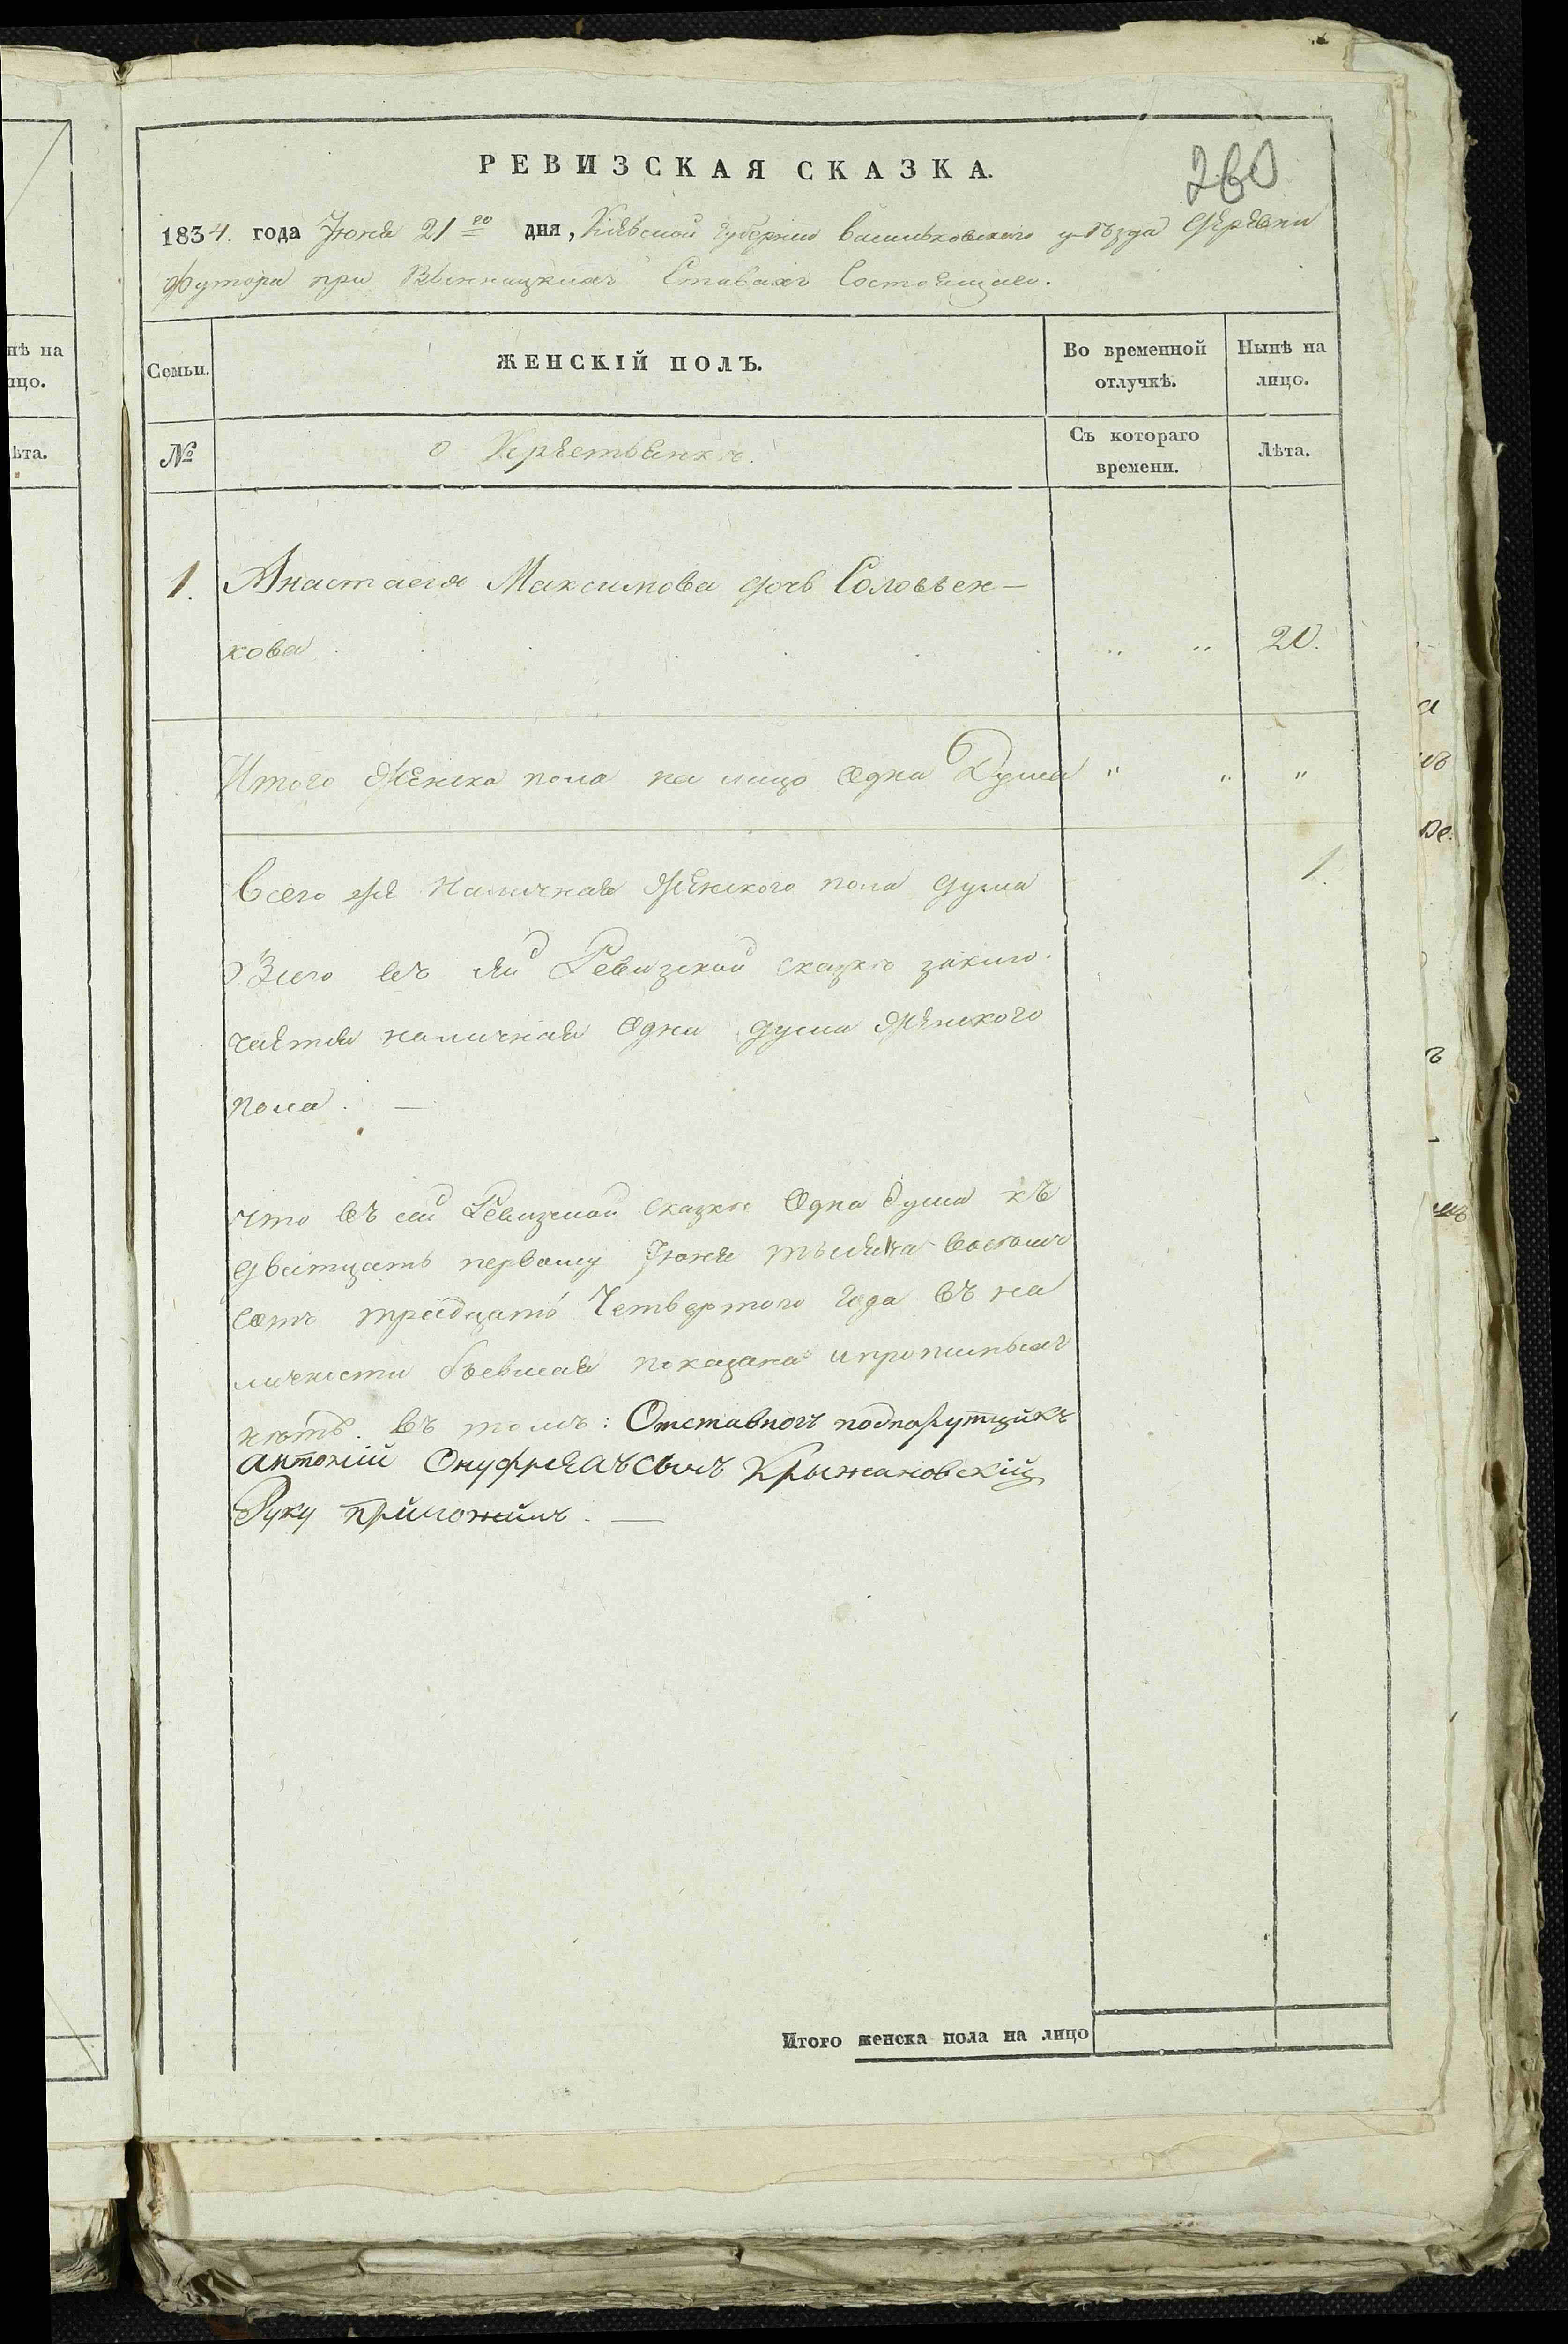 260
РЕВИЗСКАЯ СКАЗКА.
1834. года Июня 21го дня, Кіевской Губерніи васильковского уѣзда Деревни
Футора при Ставахъ Состоящаго.
Семьи.
ЖЕНСКІЙ ПОЛЪ.
Во временной
отлучкѣ.
Нынѣ на
лицо.
№
о Крестьянкѣ.
Съ котораго
времени.
Лѣта.
1. Анастасія Максимова дочь Соловьен-
кова . . . . . . . „ „ 20.
Итого Женска пола на лицо Одна Душа „ „ „
Всего же Наличная Женского пола душа 1.
Всего въ сей Ревизской сказкѣ заклю-
чается наличная Одна душа Женского
пола. —
что въ сей Ревизской Сказкѣ Одна душа къ
дватцать первому Июня тысяча Восемъ
сотъ тридцать Четвертого года въ на
личности бывшая показана и прописныхъ
нетъ. Въ томъ: Отставной подпорутщикъ
антоній Онуфріевъ сынъ Крыжановскій
Руку приложилъ. —
Итого женска пола на лицо
нѣ на
ицо.
ѣта.